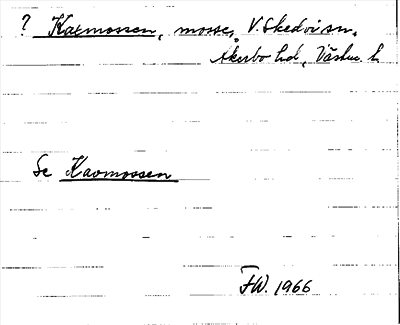 ? Karmossen, mosse, V. Skedvi sn.
Åkerbo hd, Västm. l.
Se Kaomossen
FW. 1966